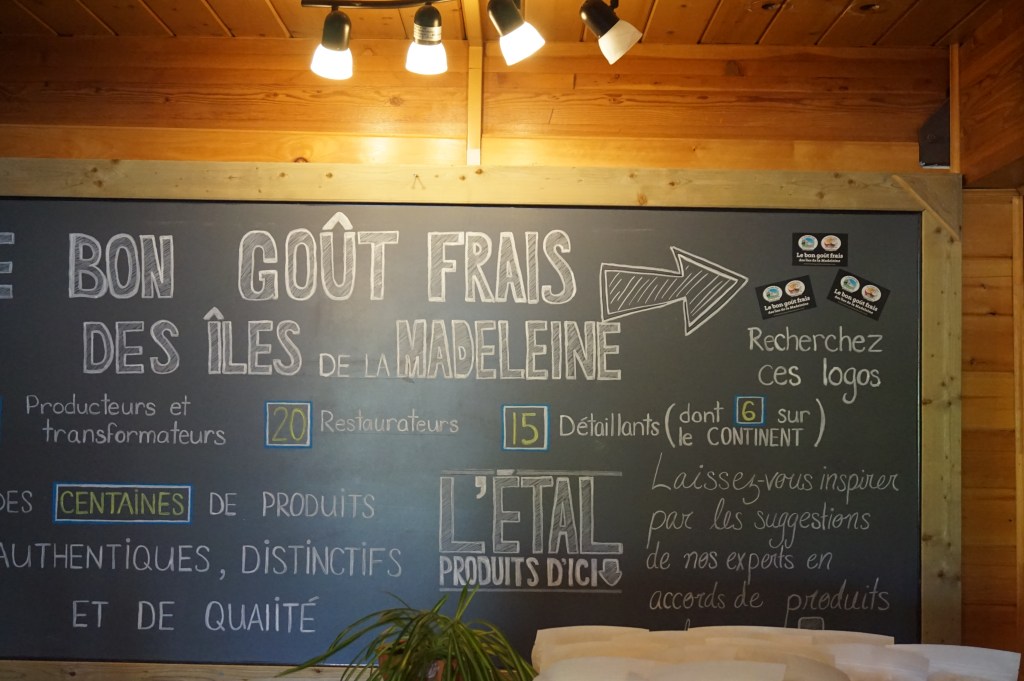 E BON GOÛT FRAIS
DES ÎLES DE LA MADELEINE
Le bon goût frais
des Îles de la Madeleine
Le bon goût frais
des Îles de la Madeleine
Le bon goût frais
des Îles de la Madeleine
Recherchez
ces logos
Producteurs et
transformateurs
20 Restaurateurs
15 Détaillants (dont 6 sur
le CONTINENT)
DES CENTAINES DE PRODUITS
AUTHENTIQUES, DISTINCTIFS
ET DE QUALITÉ
L'ÉTAL
PRODUITS D'ICI
Laissez-vous inspirer
par les suggestions
de nos experts en
accords de produits